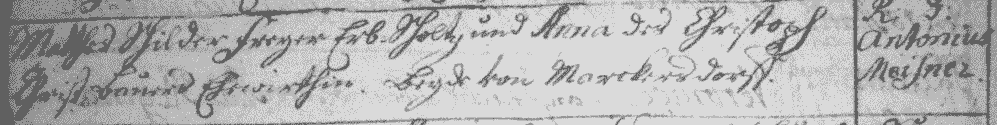 Mattes Schilder Freyer Erb Scholtz und Anna des Christoph
Grist bauers Ehewirthin. beyde von Marckersdorff.
R. D.
Antonius
Meisner.